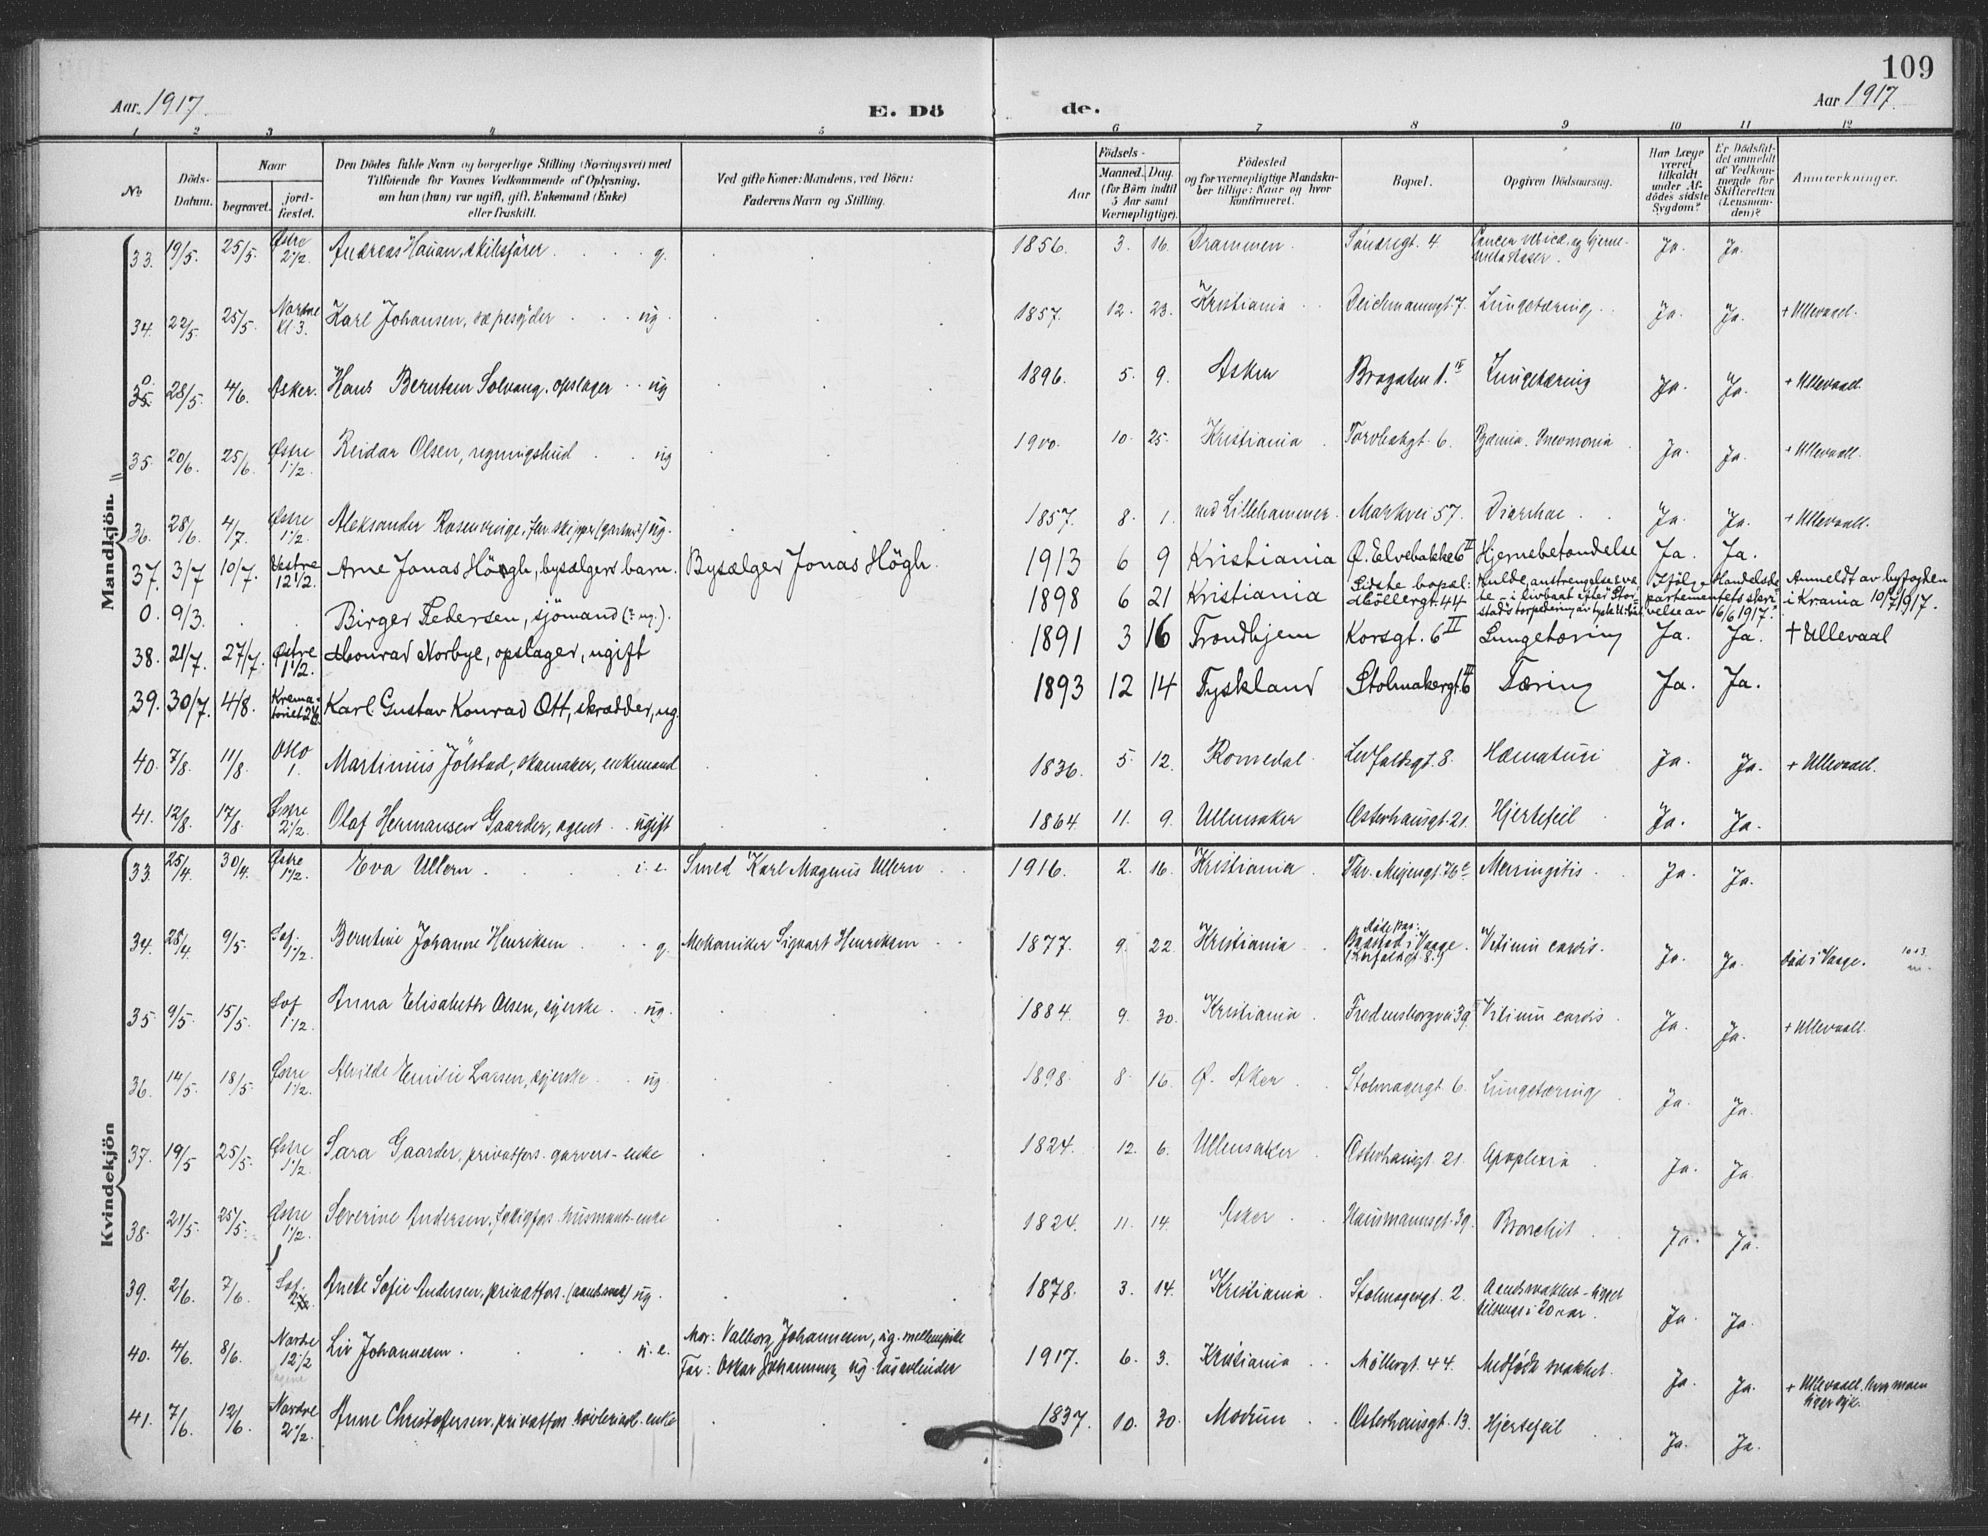 109
Aar 1917. E. Dö de. Aar 1917.
1 2 3 4 5 6 7 8 9 10 11 12
No Döds-Datum. Naar begravet. jord-fæstet. Den Dödes fulde Navn og borgerlige Stilling (Næringsvei) med Tilföiende for Voxnes Vedkommende af Oplysning, om han (hun) var ugift, gift, Enkemand (Enke) eller fraskilt. Ved gifte Koner: Mandens, ved Börn: Faderens Navn og Stilling. Födsels- Aar Maaned. Dag. (for Börn indtil 5 Aar samt Værnepligtige). Födested og for værnepligtige Mandskaber tillige: Naar og hvor konfirmeret. Bopæl. Opgiven Dödsaarsag. Har Læge været tilkaldt under Afdödes sidste Sygdom? Er Dödsfaldet anmeldt af Vedkommende for Skifteretten (Lensmanden)? Anmærkninger.
Mandkjön.
33. 19/5. 25/5. Østre 2 1/2. Andreas Hauan, skibsfører. g. 1856. 3. 16. Drammen. Søndregt. 4 Ja. Ja.
34. 22/5. 25/5. Nordre Kl. 3. Karl Johansen, sæpesyder ug. 1857. 12. 23. Kristiania Deichmannsgt. 7. Lungetæring. Ja. Ja. + Ullevaal.
35. 28/5. 4/6. Asker. Hans Berntsen Solvang, opslager ug 1896. 5. 9. Asker Brogaten 1. IV Lungetæring Ja. Ja. + Ullevaal.
35. 20/6. 25/6. Østre 1 1/2. Reidar Olsen, regningsbud ug 1900. 10. 25. Kristiania. Torvbakgt. 6. Pyæmia. Pneumonia Ja. Ja. + Ullevaal.
36. 28/6. 4/7. Østre 1 1/2. Aleksander Rosenvinge, skipper ug. 1857. 8. 1. ved Lillehammer. Markvei 57. Diarrhoe. Ja. Ja. + Ullevaal.
37. 3/7 10/7. Vestre 12 1/2. Arne Jonas Högh, bysælgers barn. Bysælger Jonas Högh. 1913 6 9 Kristiania Ø. Elvebakke 6 II Hjernebetændelse Ja. Ja.
0. 9/3. Birger Pedersen, sjömand (? ug.). 1898 6 21 Kristiania Sidste bopæl: Möllergt. 44 Kulde, anstrengelse i livbaat efter torpedering av tysk Ifölge Handelsdepartementets skrivelse av 6/6 1917. Anmeldt av byfogden i Krania 10/7 1917.
38. 21/7. 27/7. Østre 1 1/2. Monrad Norbye, opslager, ugift 1891 3 16 Trondhjem Korsgt. 6 II Lungetæring Ja. Ja. + Ullevaal
39. 30/7. 4/8. Krematoriet 2 1/2. Karl Gustav Konrad Ott, skrædder, ug. 1893 12 14 Tyskland Stolmakergt. 6 III Tæring Ja. Ja.
40. 7/8. 11/8. Oslo 1. Martinius Jölstad, skomaker, enkemand 1836. 5. 12. Romedal. Ledfaldsgt. 8. Hæmaturi Ja. Ja. + Ullevaal.
41. 12/8. 17/8. Østre 2 1/2. Olaf Hermansen Gaarder, agent ugift 1864. 11. 9. Ullensaker Osterhausgt. 21. Hjertefeil Ja. Ja.
Kvindekjön
33. 25/4. 30/4. Østre 1 1/2. Eva Ullern i. e. Smed Karl Magnus Ullern 1916. 2. 16. Kristiania. Thv. Meyergt. 76 c Meningitis Ja. Ja.
34. 28/4. 9/5. Sof. 1 1/2. Berntine Johanne Henriksen g. Mekaniker Sigvart Henriksen 1877. 9. 22. Kristiania i Vaage. Vitium cordis. Ja. Ja. død i Vaage.
35. 9/5. 15/5. Sof. 1 1/2. Anna Elisabeth Olsen, syerske ug. 1884. 9. 30. Kristiania. Fredensborgvei 39 Vitium cordis. Ja. Ja. + Ullevaal.
36. 14/5. 18/5. Østre 1 1/2. Alvilde Emilie Larsen, syerske ug 1898. 8. 16. Ø. Aker Stolmagergt. 6. Lungetæring Ja. Ja.
37. 19/5 25/5. Østre 1 1/2. Sara Gaarder, privatfors. garvers-enke 1824. 12. 6. Ullensaker. Osterhausgt. 21. Apoplexia Ja. Ja.
38. 21/5. 25/5. Østre 1 1/2. Severine Andersen, fattigfors. husmands-enke 1824. 11. 14. Asker Hausmannsgt. 39. Bronchit Ja. Ja.
39. 2/6. 7/6. Sof. Aneke Sofie Andersen, privatfors. (aandssvak) ug. 1878. 3. 14. Kristiania. Stolmagergt. 2. Aandssvakhet - ligget tilsengs i 20 aar. Ja. Ja.
40. 4/6. 8/6. Nordre 12 1/2 Liv Johannesen u. e. Mor: Valborg Johannesen, ug.
Far: Oskar Johannesen, ug. løsarbeider 1917. 6. 3. Kristiania Møllergt. 44. Medfødt svakhet. Ja. Ja. + Ullevaal. hvor moren ligger syk.
41. 7/6. 12/6. Nordre 2 1/2. Anne Christoffersen, privatfors. enke 1837. 10. 30. Modum Osterhausgt. 13. Hjertefeil Ja. Ja.